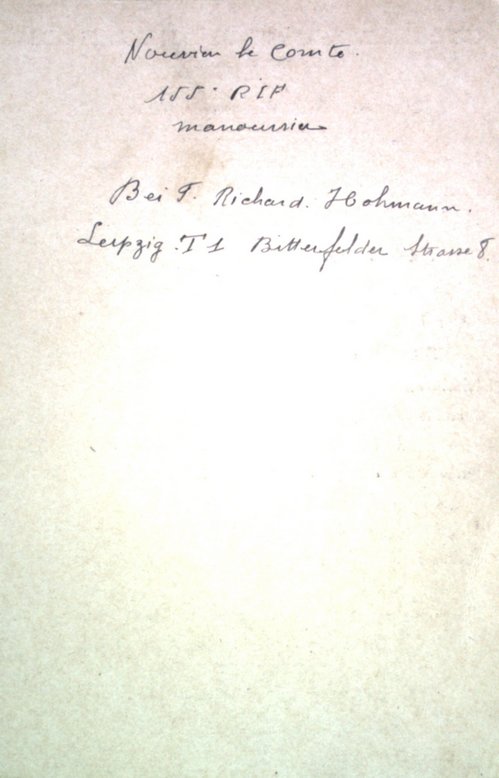 Nouvion le Comte.
155e RIF
manoeuvrier
Bei F. Richard. Hohmann.
Leipzig. T 1 Bitterfelder Strasse 8.